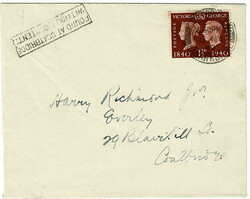 FOUND AT COATBRIDGE
WITHOUT CONTENTS
VICTORIA GEORGE
POSTAGE
1840 1940
Harry Richmond Jnr.
Everley
29 Blairhill St.
Coatbridge